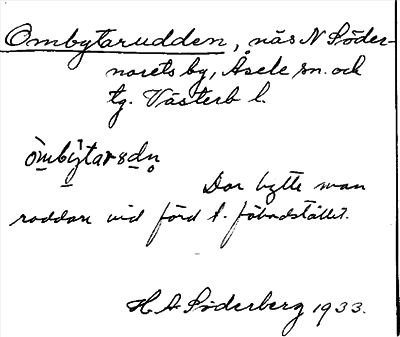 Ombytarudden, näs N Söder-
norets by, Åsele sn. och
tg. Västerb l.
òmbỳtarsdn
Där bytte man
roddare vid färd t. fäbodstället.
H. A. Söderberg 1933.